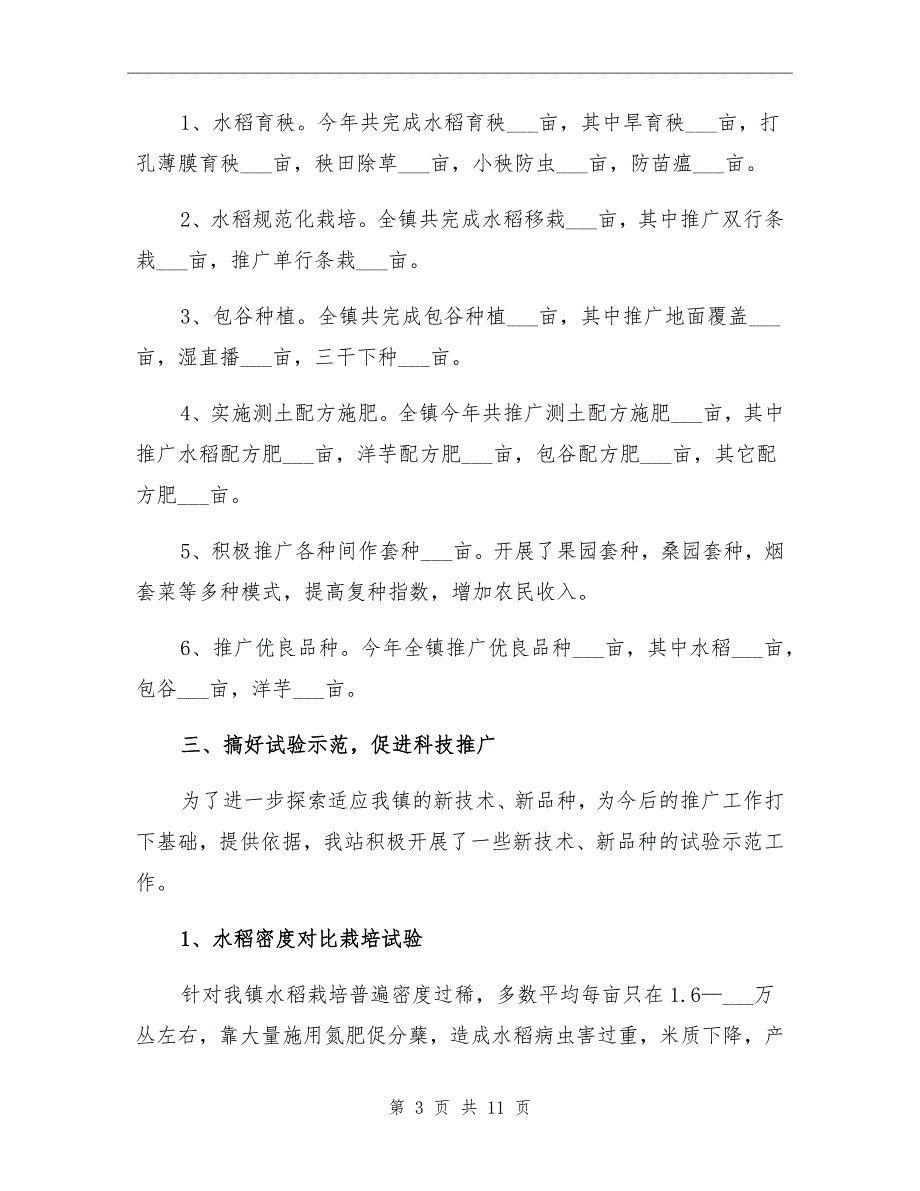 1、水稻育秧。今年共完成水稻育秧___亩，其中旱育秧___亩，打
孔薄膜育秧___亩，秧田除草___亩，小秧防虫___亩，防苗瘟___亩。
2、水稻规范化栽培。全镇共完成水稻移栽___亩，其中推广双行条
栽___亩，推广单行条栽___亩。
3、包谷种植。全镇共完成包谷种植___亩，其中推广地面覆盖___
亩，湿直播___亩，三干下种___亩。
4、实施测土配方施肥。全镇今年共推广测土配方施肥___亩，其中
推广水稻配方肥___亩，洋芋配方肥___亩，包谷配方肥___亩，其它配
方肥___亩。
5、积极推广各种间作套种___亩。开展了果园套种，桑园套种，烟
套菜等多种模式，提高复种指数，增加农民收入。
6、推广优良品种。今年全镇推广优良品种___亩，其中水稻___亩，
包谷___亩，洋芋___亩。
三、搞好试验示范，促进科技推广
为了进一步探索适应我镇的新技术、新品种，为今后的推广工作打
下基础，提供依据，我站积极开展了一些新技术、新品种的试验示范工
作。
1、水稻密度对比栽培试验
针对我镇水稻栽培普遍密度过稀，多数平均每亩只在 1.6—___万
丛左右，靠大量施用氮肥促分蘖，造成水稻病虫害过重，米质下降，产
第 3 页 共 11 页